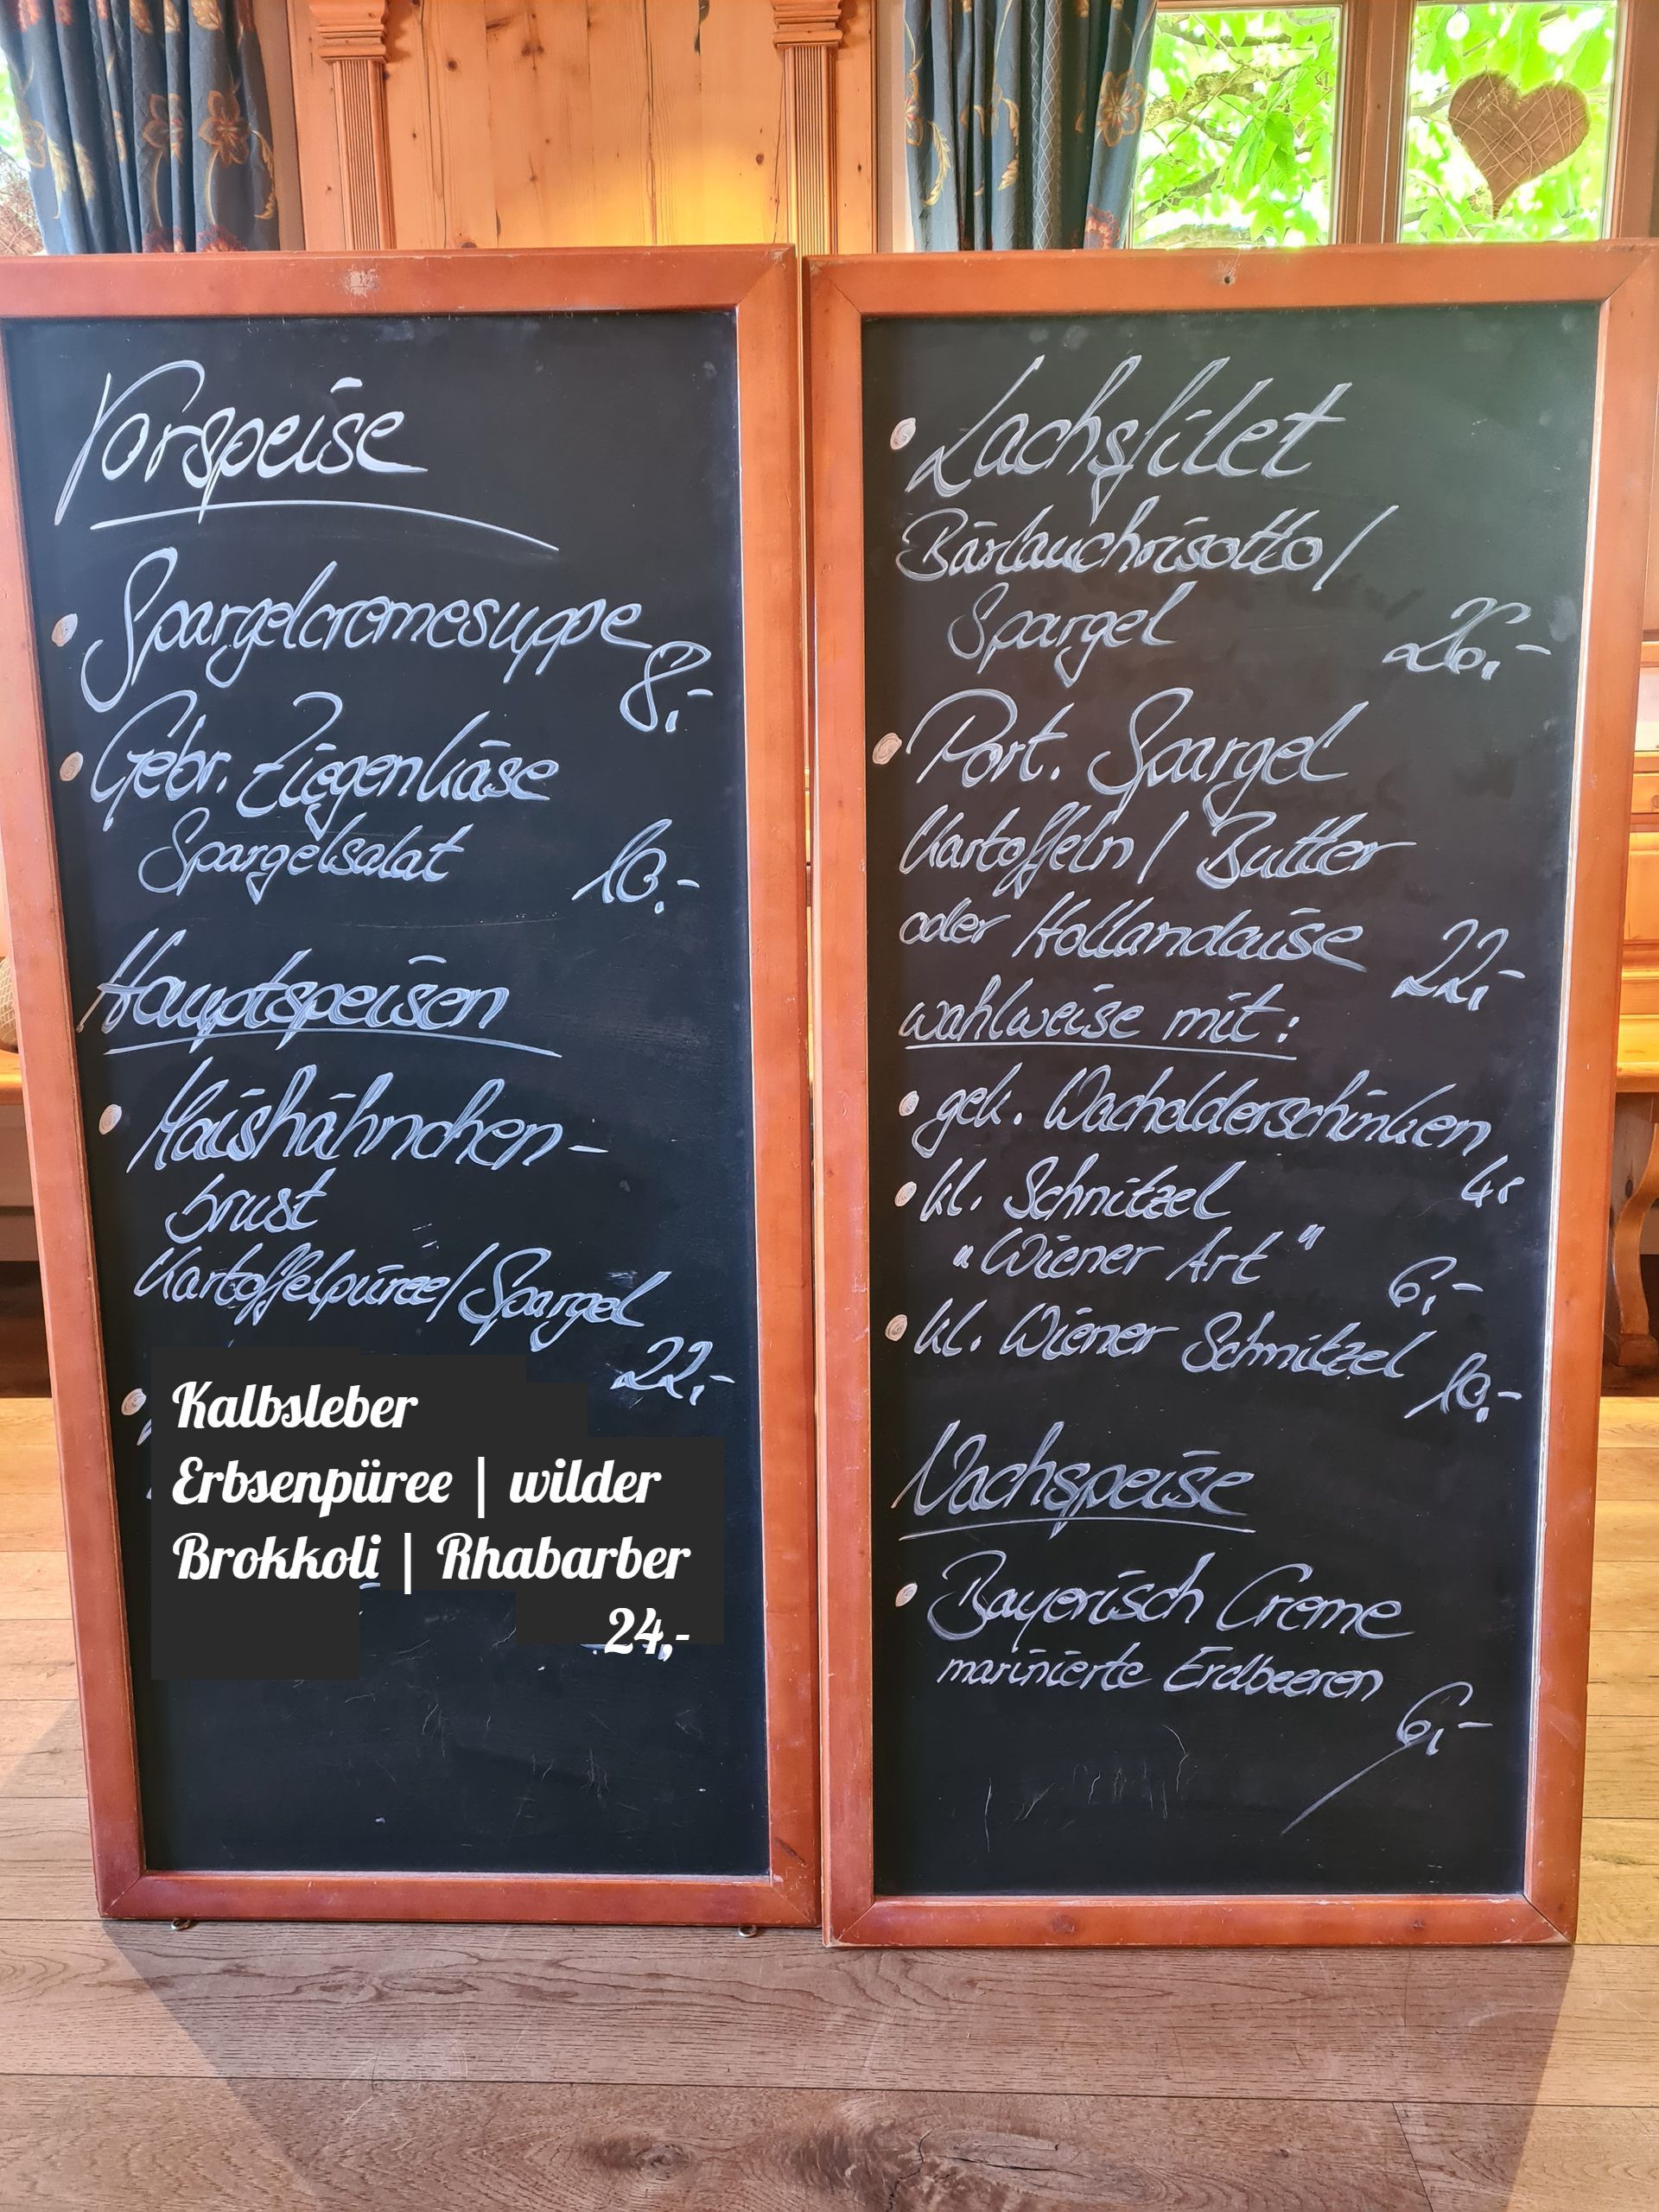 Vorspeise
• Spargelcremesuppe
8,-
• Gebr. Ziegenkäse
Spargelsalat 10,-
Hauptspeisen
• Maishähnchen-
brust
Kartoffelpüree/ Spargel
22,-
• Kalbsleber
Erbsenpüree | wilder
Brokkoli | Rhabarber
24,-
• Lachsfilet
Bärlauchrisotto/
Spargel 26,-
• Port. Spargel
Kartoffeln/ Butter
oder Hollandaise 22,-
wahlweise mit:
• gek. Wacholderschinken
4,-
• kl. Schnitzel
"Wiener Art" 6,-
• kl. Wiener Schnitzel
10,-
Nachspeise
• Bayerisch Creme
marinierte Erdbeeren
6,-